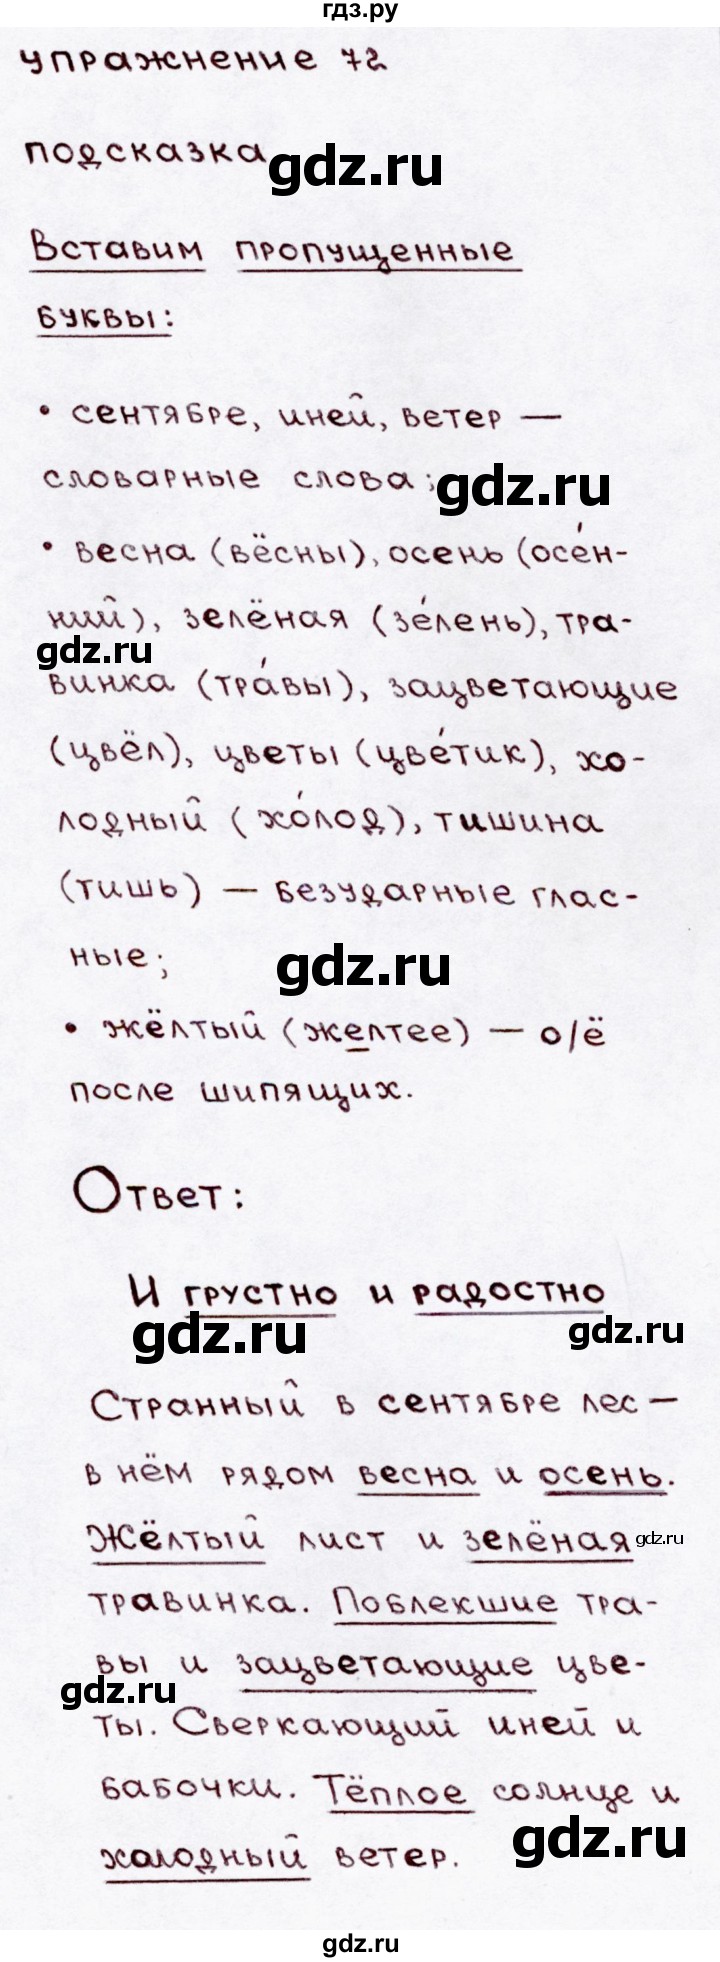 гдз.ру
упражнение 72
подсказка
gdz.ru
Вставим пропущенные
буквы:
• сентябре, иней, ветер —
словарные слова;
gdz.ru
• весна (вёсны), осень (осе́н-
ний), зелёная (зе́лень), тра-
gdz.ru
винка (тра́вы), зацветающие
(цвёл), цветы (цве́тик), хо-
лодный (хо́лод), тишина
(тишь) — безударные глас-
ные;
gdz.ru
• жёлтый (желтее) — о/ё
после шипящих.
Ответ:
И грустно и радостно
gdz.ru
gdz.ru
Странный в сентябре лес —
в нём рядом весна и осень.
Жёлтый лист и зелёная
gdz.ru
травинка. Поблекшие тра-
вы и зацветающие цве-
gdz.ru
ты. Сверкающий иней и
бабочки. Тёплое солнце и
gdz.ru
холодный ветер.
gdz.ru